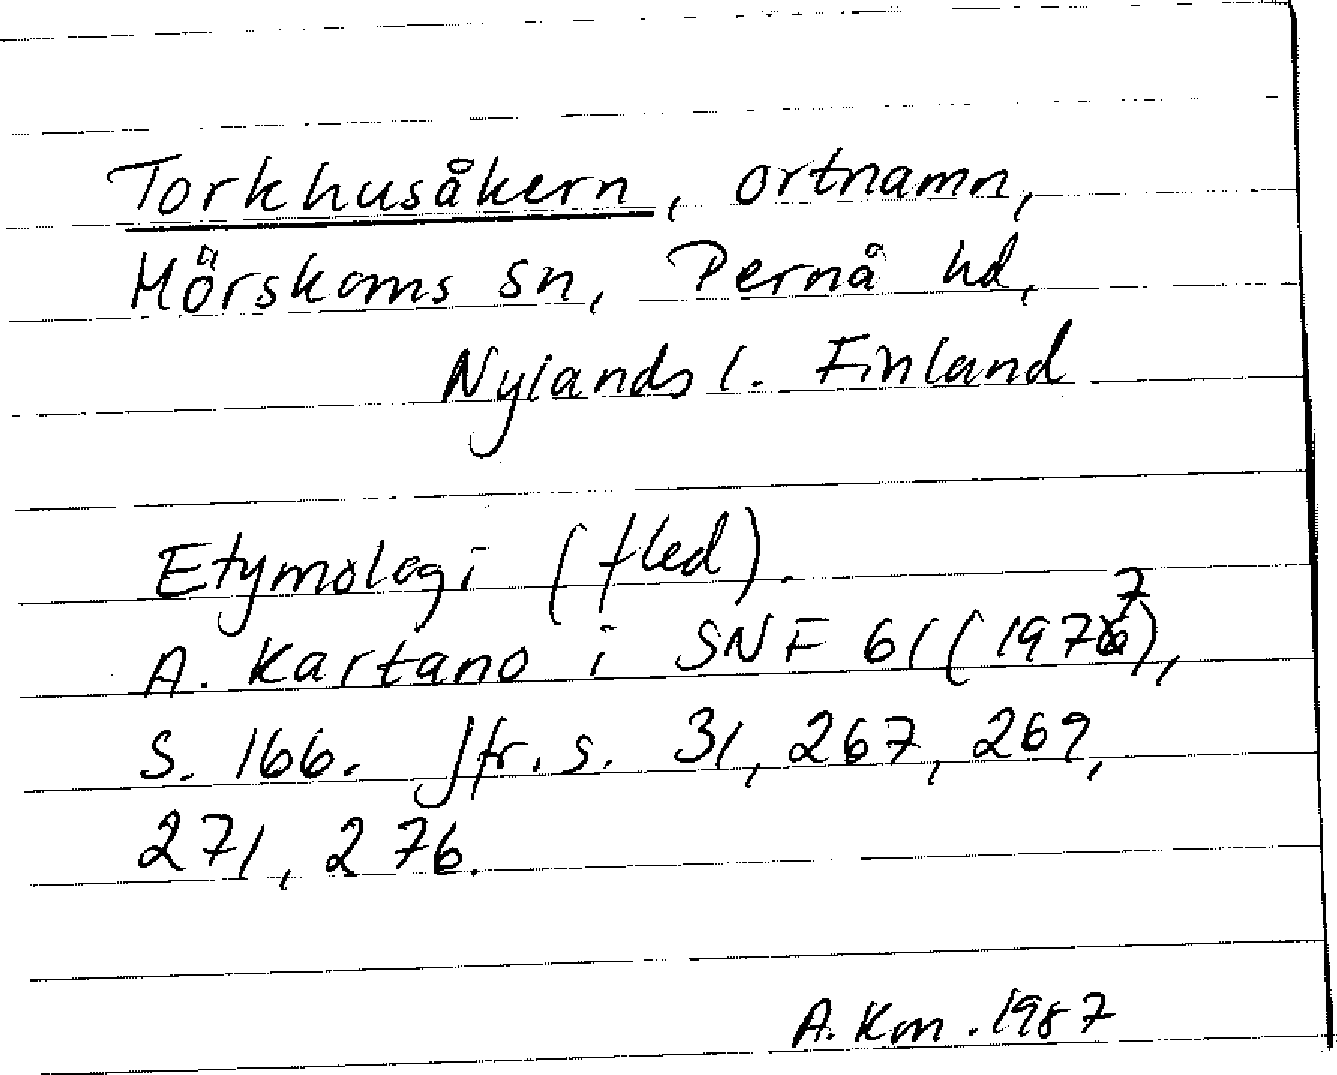 Torkhusåkern, ortnamn,
Mörskoms sn, Pernå hd,
Nylands l. Finland
Etymologi (fled).
A. Kartano i SNF 61 (1977),
S. 166. Jfr. s. 31, 267, 269,
271, 276.
A. Km. 1987